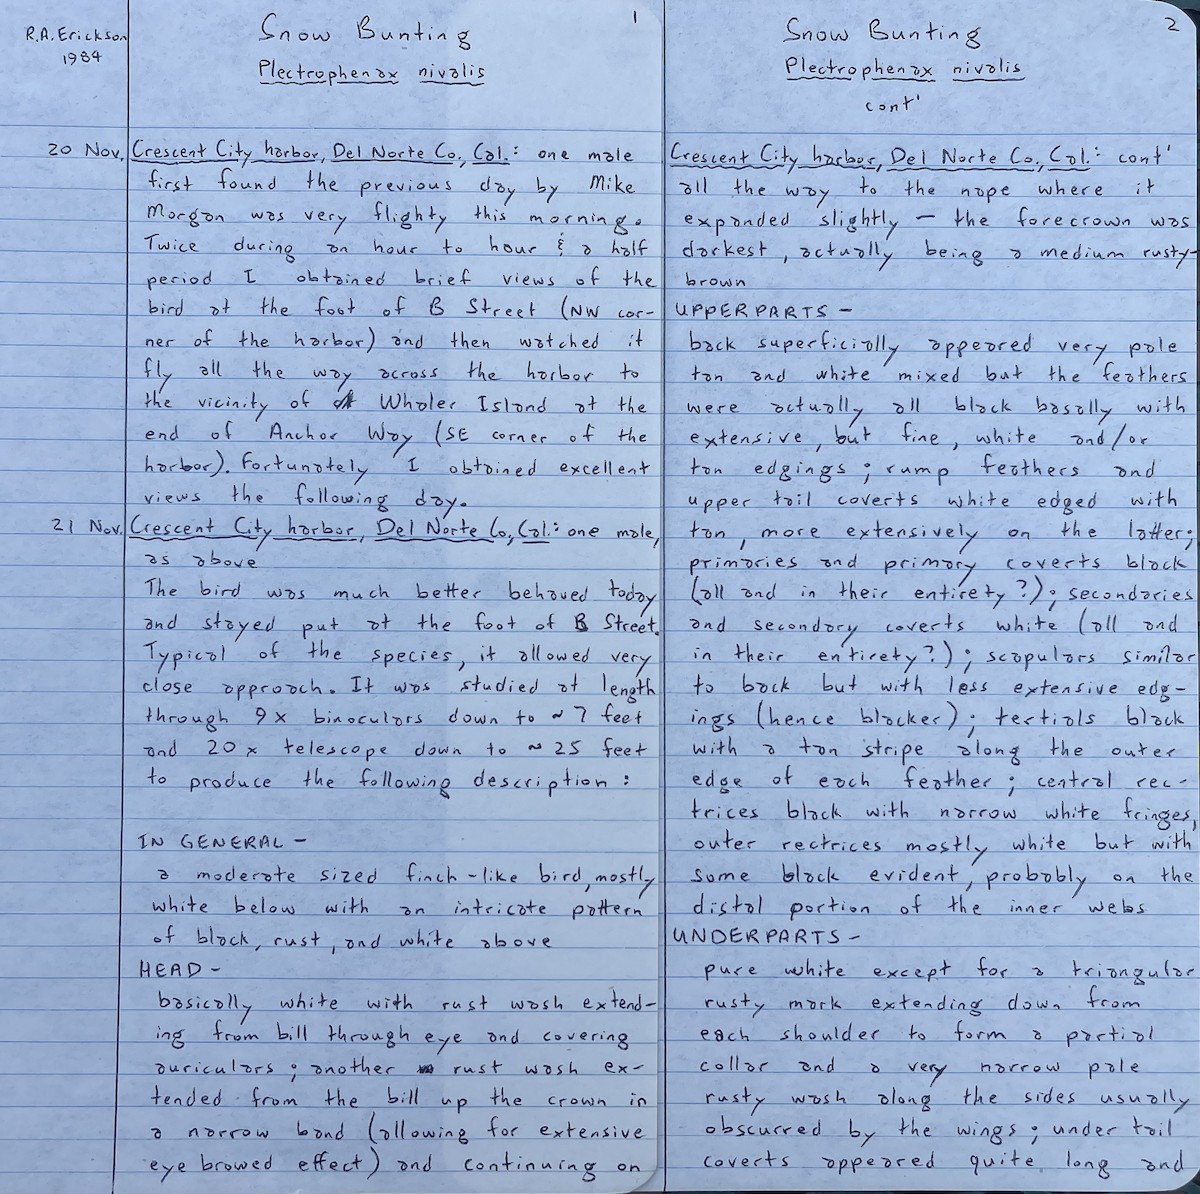 R.A. Erickson
1984
1
Snow Bunting
Plectrophenax nivalis
20 Nov. Crescent City harbor, Del Norte Co., Cal.: one male
first found the previous day by Mike
Morgan was very flighty this morning.
Twice during an hour to hour & a half
period I obtained brief views of the
bird at the foot of B Street (NW cor-
ner of the harbor) and then watched it
fly all the way across the harbor to
the vicinity of Whaler Island at the
end of Anchor Way (SE corner of the
harbor). Fortunately I obtained excellent
views the following day.
21 Nov. Crescent City harbor, Del Norte Co., Cal.: one male,
as above
The bird was much better behaved today
and stayed put at the foot of B Street.
Typical of the species, it allowed very
close approach. It was studied at length
through 9x binoculars down to ~ 7 feet
and 20x telescope down to ~ 25 feet
to produce the following description:
IN GENERAL -
a moderate sized finch-like bird, mostly
white below with an intricate pattern
of black, rust, and white above
HEAD -
basically white with rust wash extend-
ing from bill through eye and covering
auriculars; another rust wash ex-
tended from the bill up the crown in
a narrow band (allowing for extensive
eye browed effect) and continuing on
2
Snow Bunting
Plectrophenax nivalis
cont'
Crescent City harbor, Del Norte Co., Cal.: cont'
all the way to the nape where it
expanded slightly — the forecrown was
darkest, actually being a medium rusty-
brown
UPPERPARTS -
back superficially appeared very pale
tan and white mixed but the feathers
were actually all black basally with
extensive, but fine, white and/or
tan edgings; rump feathers and
upper tail coverts white edged with
tan, more extensively on the latter;
primaries and primary coverts black
(all and in their entirety?); secondaries
and secondary coverts white (all and
in their entirety?); scapulars similar
to back but with less extensive edg-
ings (hence blacker); tertials black
with a tan stripe along the outer
edge of each feather; central rec-
trices black with narrow white fringes,
outer rectrices mostly white but with
some black evident, probably on the
distal portion of the inner webs
UNDERPARTS -
pure white except for a triangular
rusty mark extending down from
each shoulder to form a partial
collar and a very narrow pale
rusty wash along the sides usually
obscurred by the wings; under tail
coverts appeared quite long and